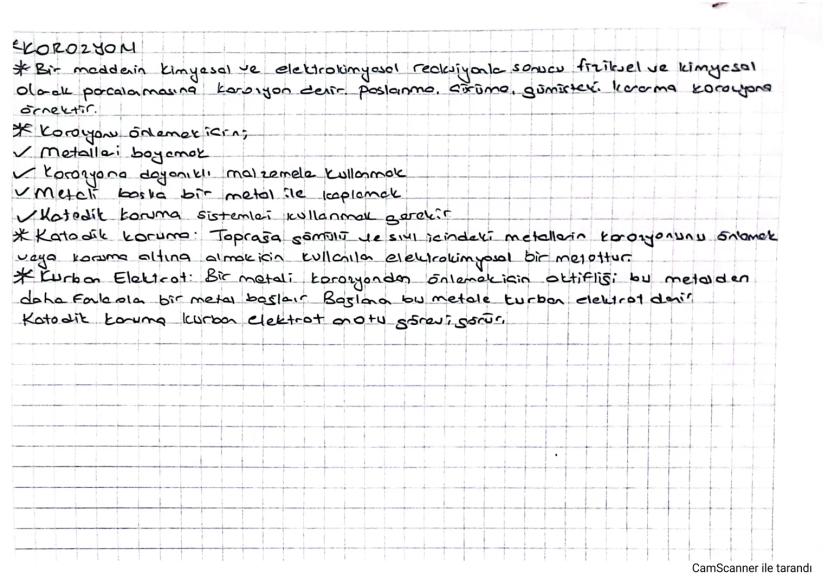 KOROZYON
* Bir maddenin kimyasal ve elektrokimyasal reaksiyonla sonucu fiziksel ve kimyasal
olarak parcalanmasına korozyon denir. Paslanma, çürüme, gümüşteki kararma korozyona
örnektir.
* Korozyonu önlemek için;
✓ Metalleri boyamak
✓ Korozyona dayanıklı malzemele kullanmak
✓ Metali baska bir metal ile kaplamak
✓ Katodik koruma sistemleri kullanmak gerekir
* Katodik koruma: Toprağa gömülü ve sıvı icindeki metallerin korozyonunu önlemek
veya koruma altına almak icin kullanıla elektrokimyasal bir metottur.
* Kurban Elektrot: Bir metali korozyondan önlemek icin aktifliği bu metalden
daha fazla ola bir metal bağlanır Bağlana bu metale kurban elektrot denir
Katodik koruma kurban elektrot anotu görevi görür.
CamScanner ile tarandı